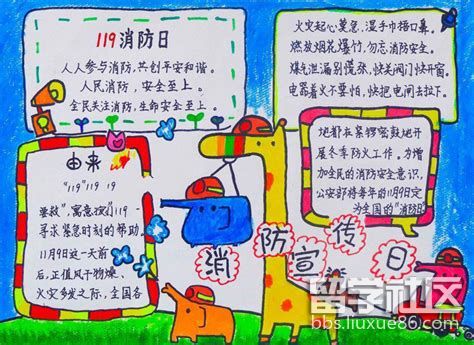 119消防日
人人参与消防，共创平安和谐。
人民消防，安全至上。
全民关注消防，生命安全至上。
火灾起心莫急，湿手巾捂口鼻。
燃放烟花爆竹，勿忘消防安全。
煤气泄漏别慌张，快关阀门快开窗。
电器着火不要怕，快把电闸去拉下。
由来
"119"119 119
寓意按 119
寻求紧急时刻的帮助。
11月9日这一天前
后，正值风干物燥、
火灾多发之际，全国各
地都在紧锣密鼓地开
展冬季防火工作。为增
加全民的消防安全意识，
公安部将每年的11月9日定
为全国的"消防日"
消防宣传日
留学社区
bbs.liuxue86.com